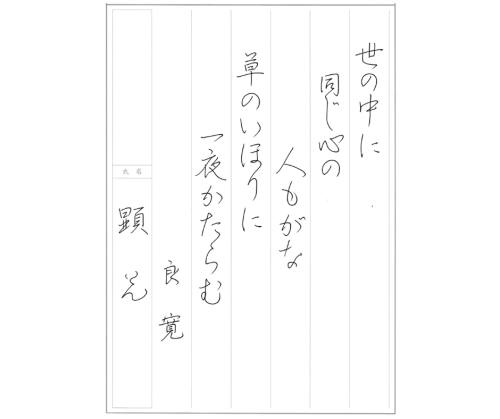 世の中に
同じ心の
人もがな
草のいほりに
一夜かたらむ
良寛
氏名
顕